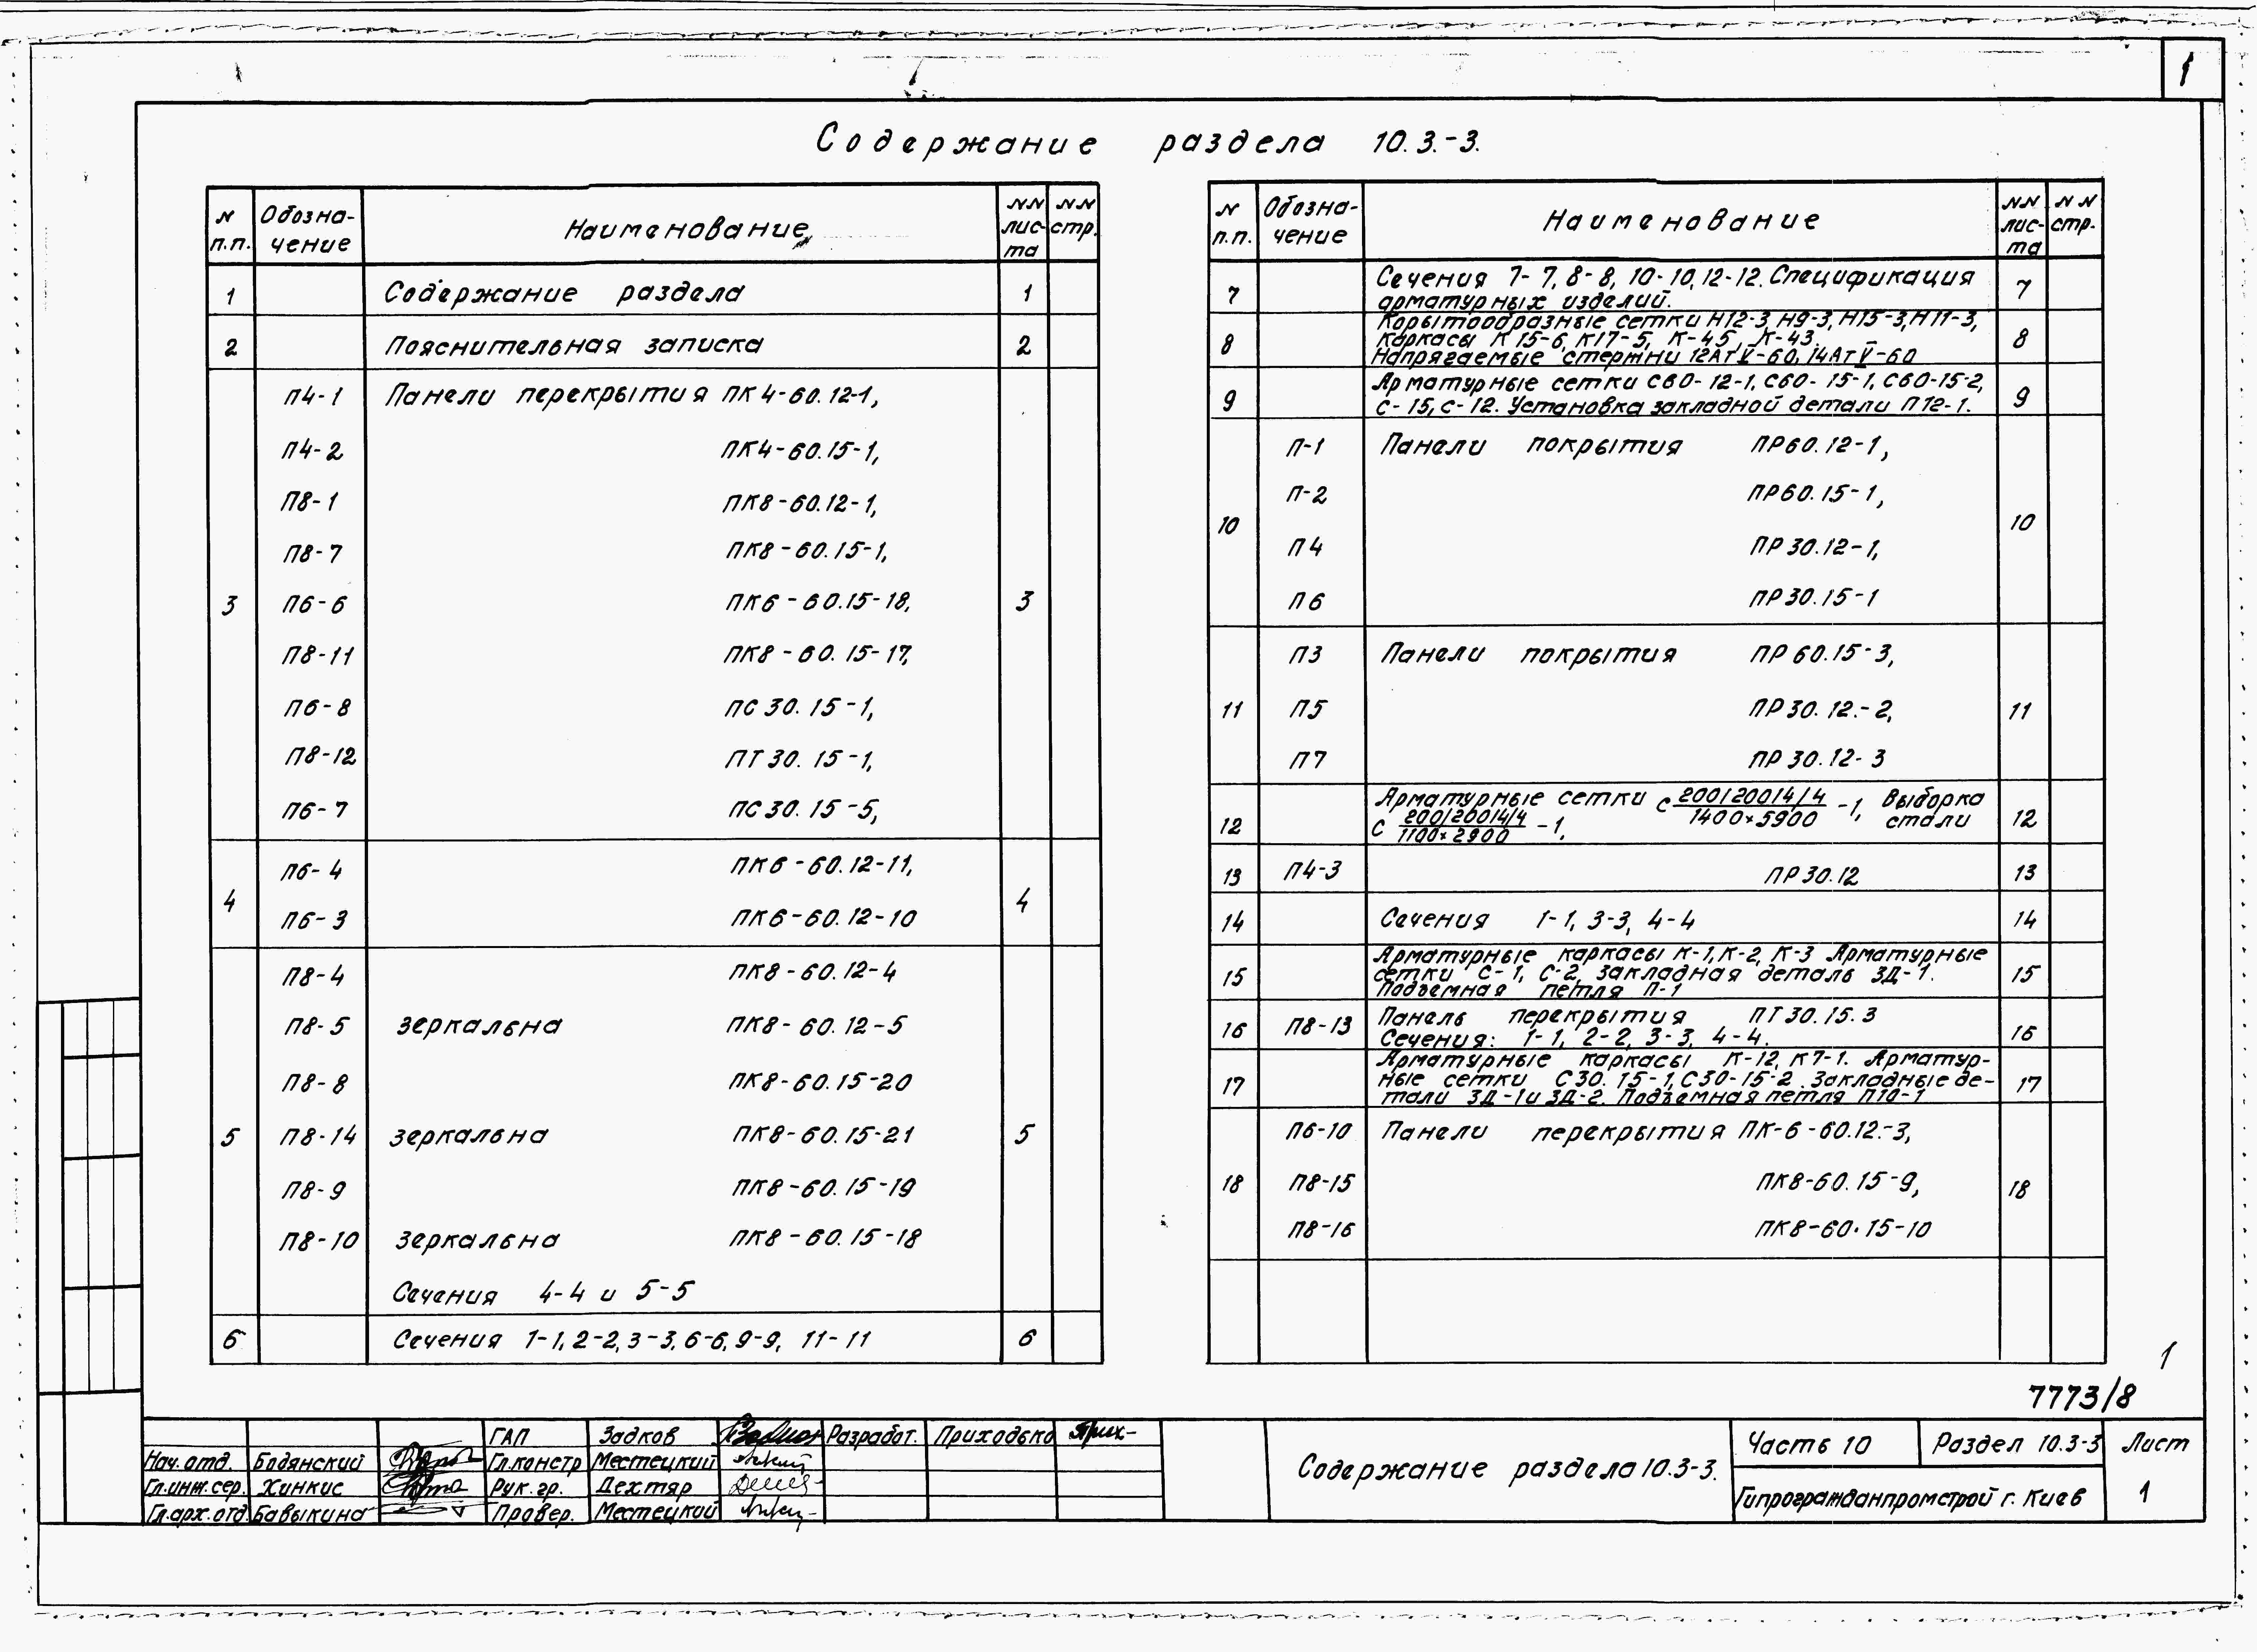 1
Содержание раздела 10.3.-3.
N п.п. Обозна-чение Наименование NN лис-та NN стр.
1 Содержание раздела 1
2 Пояснительная записка 2
П4-1 Панели перекрытия ПК4-60.12-1,
П4-2 ПК4-60.15-1,
П8-1 ПК8-60.12-1,
П8-7 ПК8-60.15-1,
3 П6-6 ПК6-60.15-18, 3
П8-11 ПК8-60.15-17,
П6-8 ПС30.15-1,
П8-12 ПТ30.15-1,
П6-7 ПС30.15-5,
П6-4 ПК6-60.12-11,
4 4
П6-3 ПК6-60.12-10
П8-4 ПК8-60.12-4
П8-5 зеркальна ПК8-60.12-5
П8-8 ПК8-60.15-20
5 П8-14 зеркальна ПК8-60.15-21 5
П8-9 ПК8-60.15-19
П8-10 зеркальна ПК8-60.15-18
Сечения 4-4 и 5-5
6 Сечения 1-1, 2-2, 3-3, 6-6, 9-9, 11-11 6
N п.п. Обозна-чение Наименование NN лис-та NN стр.
Сечения 7-7, 8-8, 10-10, 12-12. Спецификация
7 арматурных изделий. 7
Корытообразные сетки Н12-3, Н9-3, Н15-3, Н11-3,
8 Каркасы К15-6, К17-5, К-45, К-43. 8
Напрягаемые стержни 12АтV-60, 14АтV-60
Арматурные сетки С60-12-1, С60-15-1, С60-15-2,
9 С-15, С-12. Установка закладной детали П12-1. 9
П-1 Панели покрытия ПР60.12-1,
П-2 ПР60.15-1,
10 10
П4 ПР30.12-1,
П6 ПР30.15-1
П3 Панели покрытия ПР60.15-3,
11 П5 ПР30.12.-2, 11
П7 ПР30.12-3
Арматурные сетки С 200/200/4/4 / 1400×5900 -1, Выборка стали
12 С 200/200/4/4 / 1100×2900 -1, 12
13 П4-3 ПР30.12 13
14 Сечения 1-1, 3-3, 4-4 14
Арматурные каркасы К-1, К-2, К-3 Арматурные
15 сетки С-1, С-2, Закладная деталь ЗД-1. 15
Подъемная петля П-1
16 П8-13 Панель перекрытия ПТ30.15.3 16
Сечения: 1-1, 2-2, 3-3, 4-4.
Арматурные каркасы К-12, К7-1. Арматур-
17 ные сетки С30.15-1, С30-15-2. Закладные де- 17
тали ЗД-1 и ЗД-2. Подъемная петля П10-1
П6-10 Панели перекрытия ПК-6-60.12.-3,
18 П8-15 ПК8-60.15-9, 18
П8-16 ПК8-60.15-10
1
7773/8
ГАП Задков Разработ. Приходько Прих-
Нач.отд. Бодянский Гл.констр Местецкий
Гл.инж.сер. Хинкис Рук.гр. Дехтяр
Гл.арх.отд. Бавыкина Провер. Местецкий
Содержание раздела 10.3-3.
Часть 10 Раздел 10.3-3 Лист
Гипрогражданпромстрой г. Киев 1